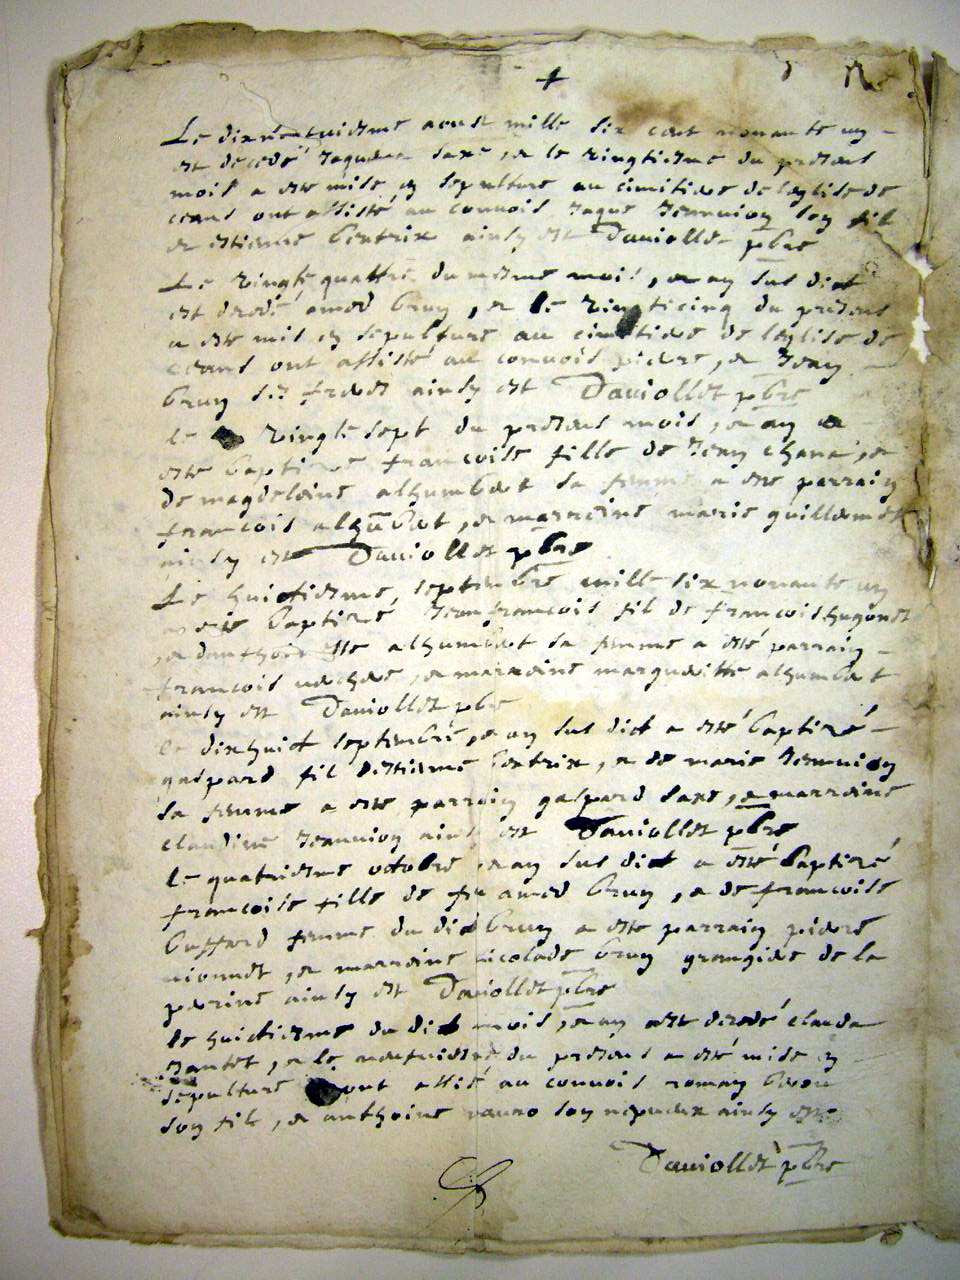 Le dixneufuiesme aoust mille six cent nonante ung
est decedé Jaquema saxe, et le vingtiesme du present
mois a este mise en sepulture au cimitiere de leglise de
ceans ont assisté au convois Jaque Jennuion son fil
et estienne bentrix ainsy est Daviollet pbre
Le vingte quattre du mesme mois, et an sus dict
est decedé amed bruy, et le vingticinq du present
a este mis en sepulture au cimitiere de leglise de
ceans ont assisté au convois pierre, et Jean
bruy ses freres ainsy est Daviollet pbre
le vingte sept du present mois, et an a
este baptizee francoise fille de Jean chana, et
de magdelaine alhumbert sa femme a este parrain
francois alhubert, et marraine marie guillermet
ainsy est Daviollet pbre
Le huictiesme septembre mille six nonante un
a este baptizé Jeanfrancois fil de francois hugonet
et danthoinette alhumbert sa femme a esté parrain
francois vachere, et marraine margueritte alhumbert
ainsy est Daviollet pbre
le dixhuict septembre, et an sus dict a esté baptizé
gaspard fil destienne bentrix, et de marie Jennuion
sa femme a este parrain gaspard saxe, et marraine
claudine Jennuion ainsy est Daviollet pbre
le quatriesme octobre, et an sus dict a esté baptizé
francoise fille de fu amed bruy, et de francoise
buffard femme du dict bruy a este parrain pierre
vionnet, et marraine nicolarde bruy grangiere de la
perrine ainsy est Daviollet pbre
le huictiesme du dict mois, et an est decedé clauda
Jantet, et le neufuiesme du present a esté mise en
sepulture ont assisté au convois romain
son fil, et anthoine son nepueux ainsy este
Daviollet pbre